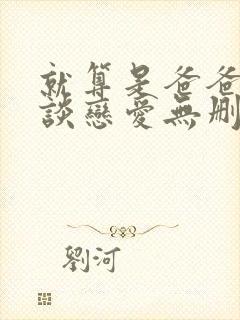 就算是爸爸
談戀愛無刪
劉河